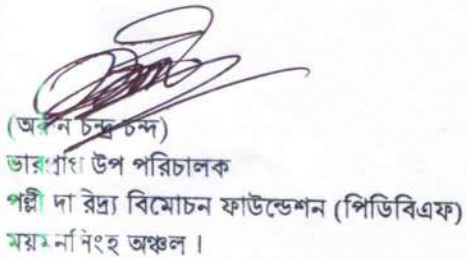 (অরুন চন্দ্র চন্দ)
ভারপ্রাপ্ত উপ পরিচালক
পল্লী দারিদ্র্য বিমোচন ফাউন্ডেশন (পিডিবিএফ)
ময়মনসিংহ অঞ্চল ।